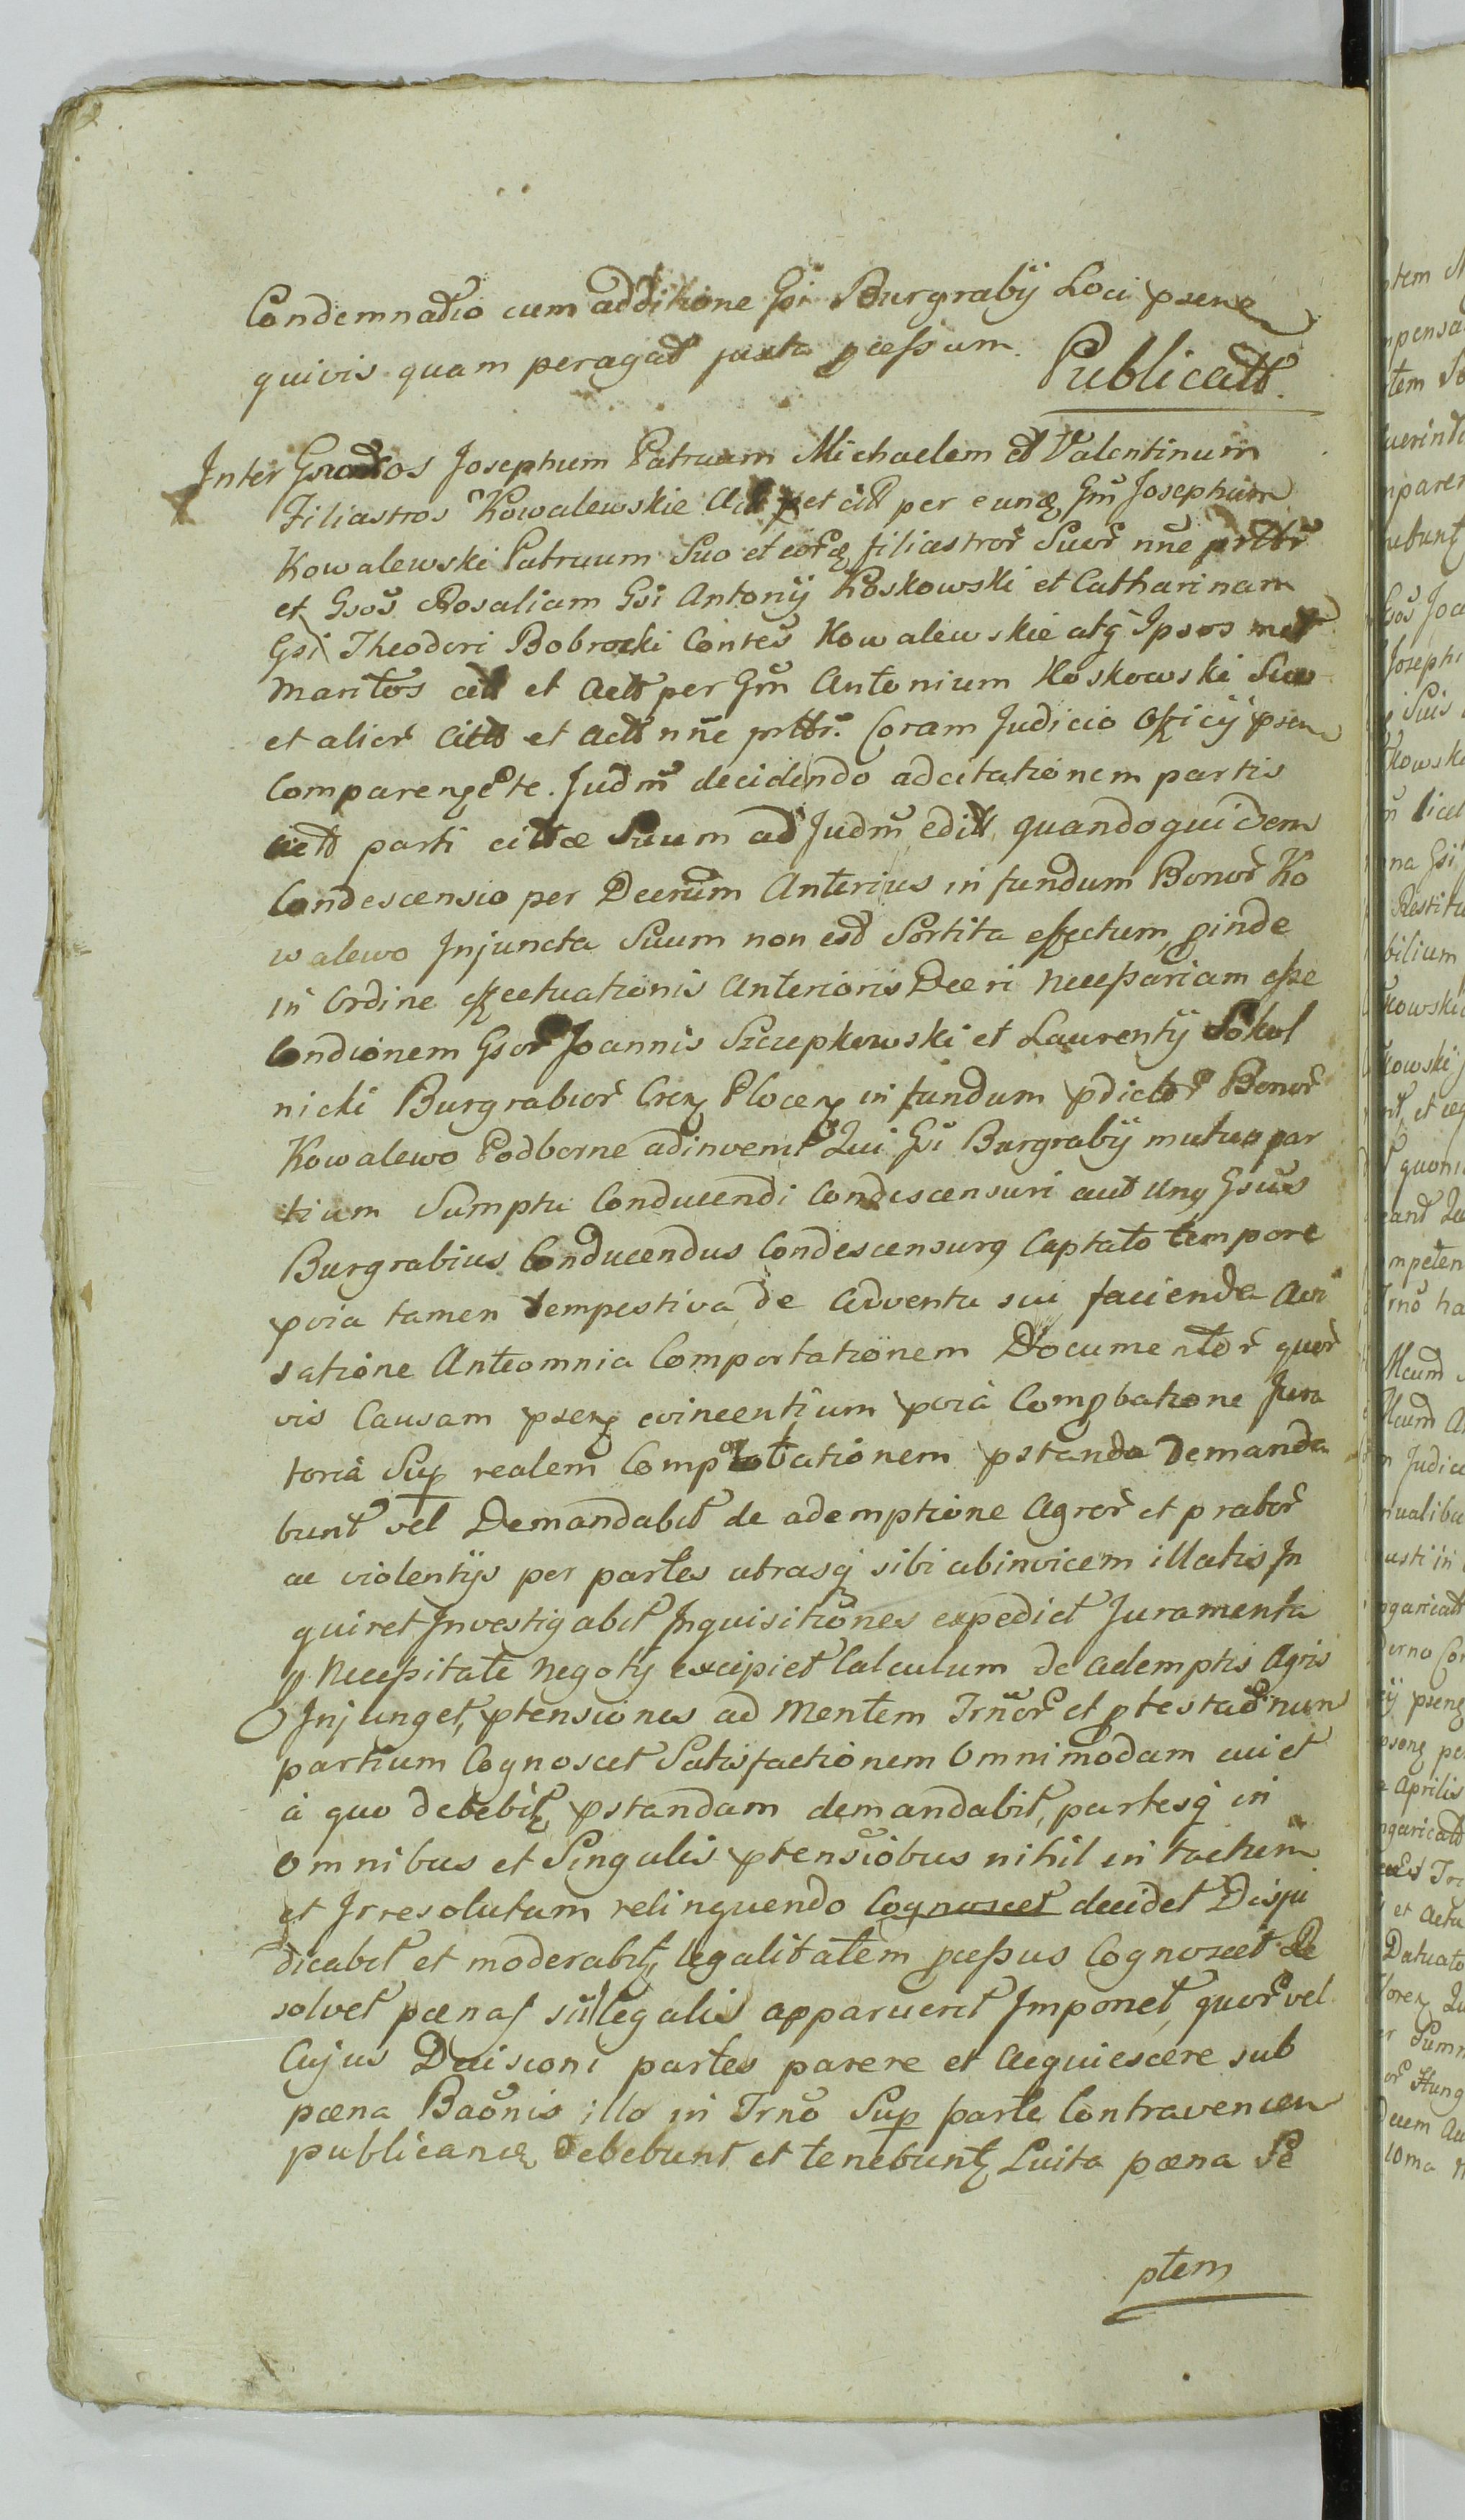 Condemnatio cum additione Gsi Burgrabij Loci psen
quivis quam peragat juxta pcessum.
Publicatt.
Inter Gnatos Josephum Patruum Michaelem et Valentinum
Filiastros Kowalewskie Actt et citt per eund Gm Josephum
Kowalewski Patruum Suo et eor filiastror Suor nne prttr
et Gsos Rosaliam Gsi Antonij Koskowski et Catharinam
Gsi Theodori Bobrocki Contes Kowalewskie atq Ipsos met
maritos citt et Actt per Gm Antonium Koskowski Suo
et alior Citt et Actt nne prttr. Coram Judicio Officij psen
Comparen pte. Judm decidendo adcitationem partis
actt parti cittae Suum ad Judm editt, quandoquidem
Condescensio per Decrum Anterius in fundum Bonor Ko
walewo Injuncta Suum non est Sortita effectum pinde
in Ordine effectuationis Anterioris Decri necessariam esse
Condionem Gsor Joannis Szczepkowski et Laurentij Sokol
nicki Burgrabior Cren Plocen in fundum pdictor Bonor
Kowalewo Podborne adinvenit Qui Gsi Burgrabij mutuo par
tium Sumptu Conducendi Condescensuri aut Unq Gsus
Burgrabius Conducendus Condescensurq Captato tempore
pvia tamen tempestiva de Adventu sui facienda avi
satione Anteomnia Comportationem Documentor quor
vis Causam psen evincentium pvia Compbatione Jura
toria Sup realem Comportationem pstanda Demanda
bunt vel Demandabit de ademptione Agror et prator
ac violentijs per partes utrasq sibi abinvicem illatis In
quiret Investigabit Inquisitiones expediet Juramenta
p Necessitate Negotij excipiet Calculum de ademptis Agris
Injunget, ptensiones ad Mentem Trnor et ptestationum
partium Cognoscet Satisfactionem Omnimodam cui et
à quo debebit pstandam demandabit, partesq in
Omnibus et Singulis ptensiobus nihil intactum
et Irresolutum relinquendo Cognoscet decidet Disju
dicabit et moderabit, legalitatem pcessus Cognoscet Re
solvet paenas si illegalis apparuerit Imponet, quor vel
Cujus Decisioni partes parere et Acquiescere sub
paena Baonis illo in Trno Sup parte Contravenien
publicanda debebunt et tenebunt Luita paena Se
ptem